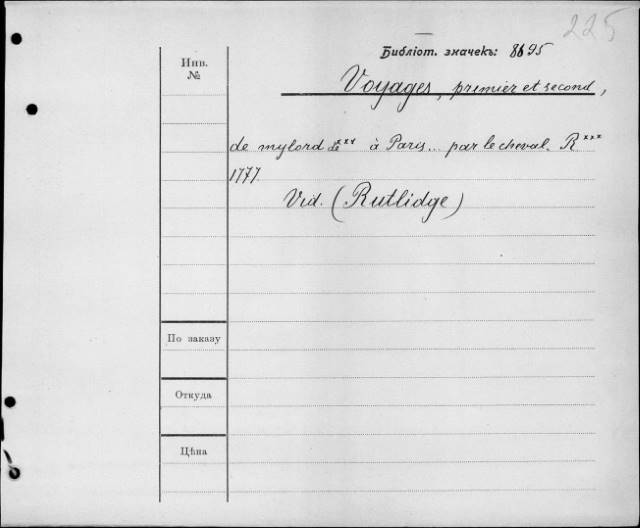 225
Библіот. значекъ: 8695
Инв.
№
Voyages, premier et second,
de mylord de*** à Paris... par le cheval. R***
1777
Vid. (Rutlidge)
По заказу
Откуда
Цѣна